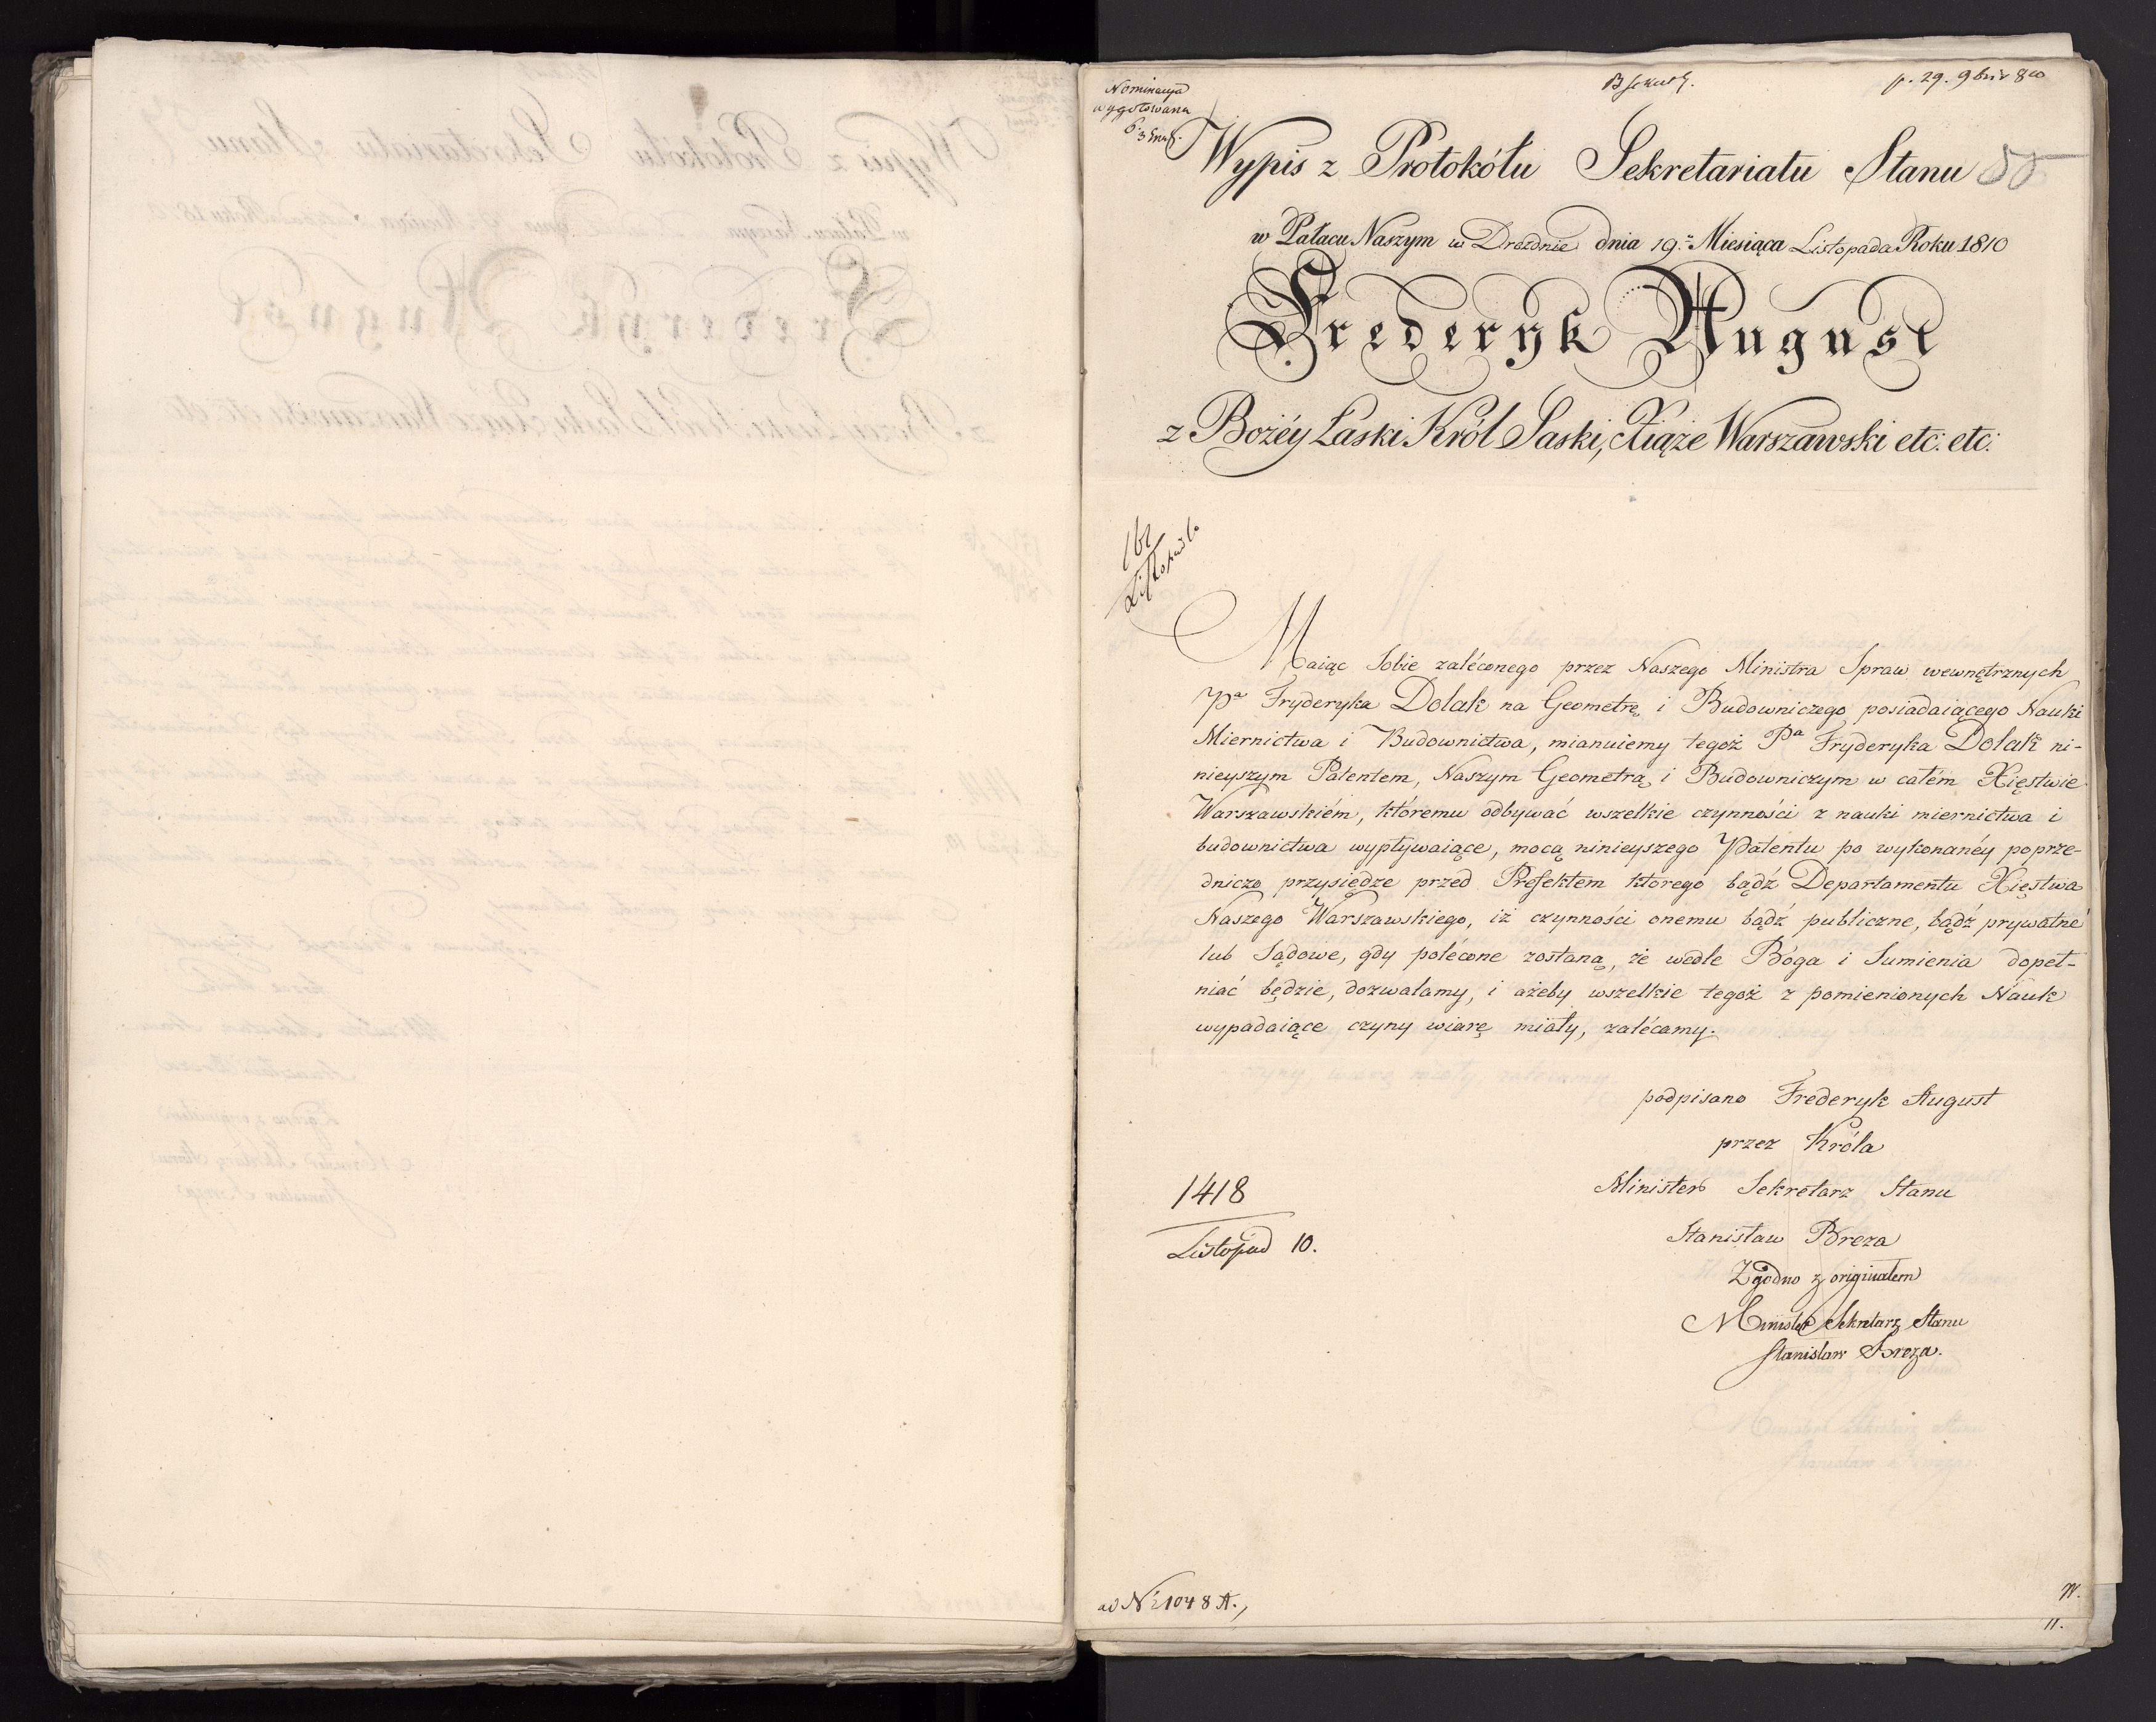 Nominacya
wygotowana
p. 29. 9bris 810
Wypis z Protokółu Sekretariatu Stanu 55
w Pałacu Naszym w Dreźnie dnia 19. Miesiąca Listopada Roku 1810
Frederyk August
z Bożéy Łaski Król Saski, Xiąże Warszawski etc: etc:
161
Listopad
Maiąc Sobie zalécónego przez Naszego Ministra Spraw wewnętrznych
Pa Fryderyka Dolak na Geometrę i Budowniczego posiadaiącego Nauki
Miernictwa i Budownictwa, mianuiemy tegoż Pa Fryderyka Dolak ni-
nieyszym Patentem, Naszym Geometrą i Budowniczym w całém Xięstwie
Warszawskiém, któremu odbywać wszelkie czynności z nauki miernictwa i
budownictwa wypływaiące, mocą ninieyszego Patentu po wykonanéy poprze-
dniczo przysiędze przed Prefektem którego bądź Departamentu Xięstwa
Naszego Warszawskiego, iż czynności onemu bądź publiczne, bądź prywatné
lub Sądowe, gdy polécone zostaną, że wedle Bóga i Sumienia dopeł-
niać będzie, dozwalamy, i ażeby wszelkie tegoż z pomienionych Nauk
wypadaiące czyny wiarę miały, zalécamy.
podpisano Frederyk August
przez Króla
Minister Sekretarz Stanu
Stanisław Breza
Zgodno z originałem
Minister Sekretarz Stanu
Stanisław Breza.
1418
Listopad 10.
ad No 21048 A.,
N.
11.